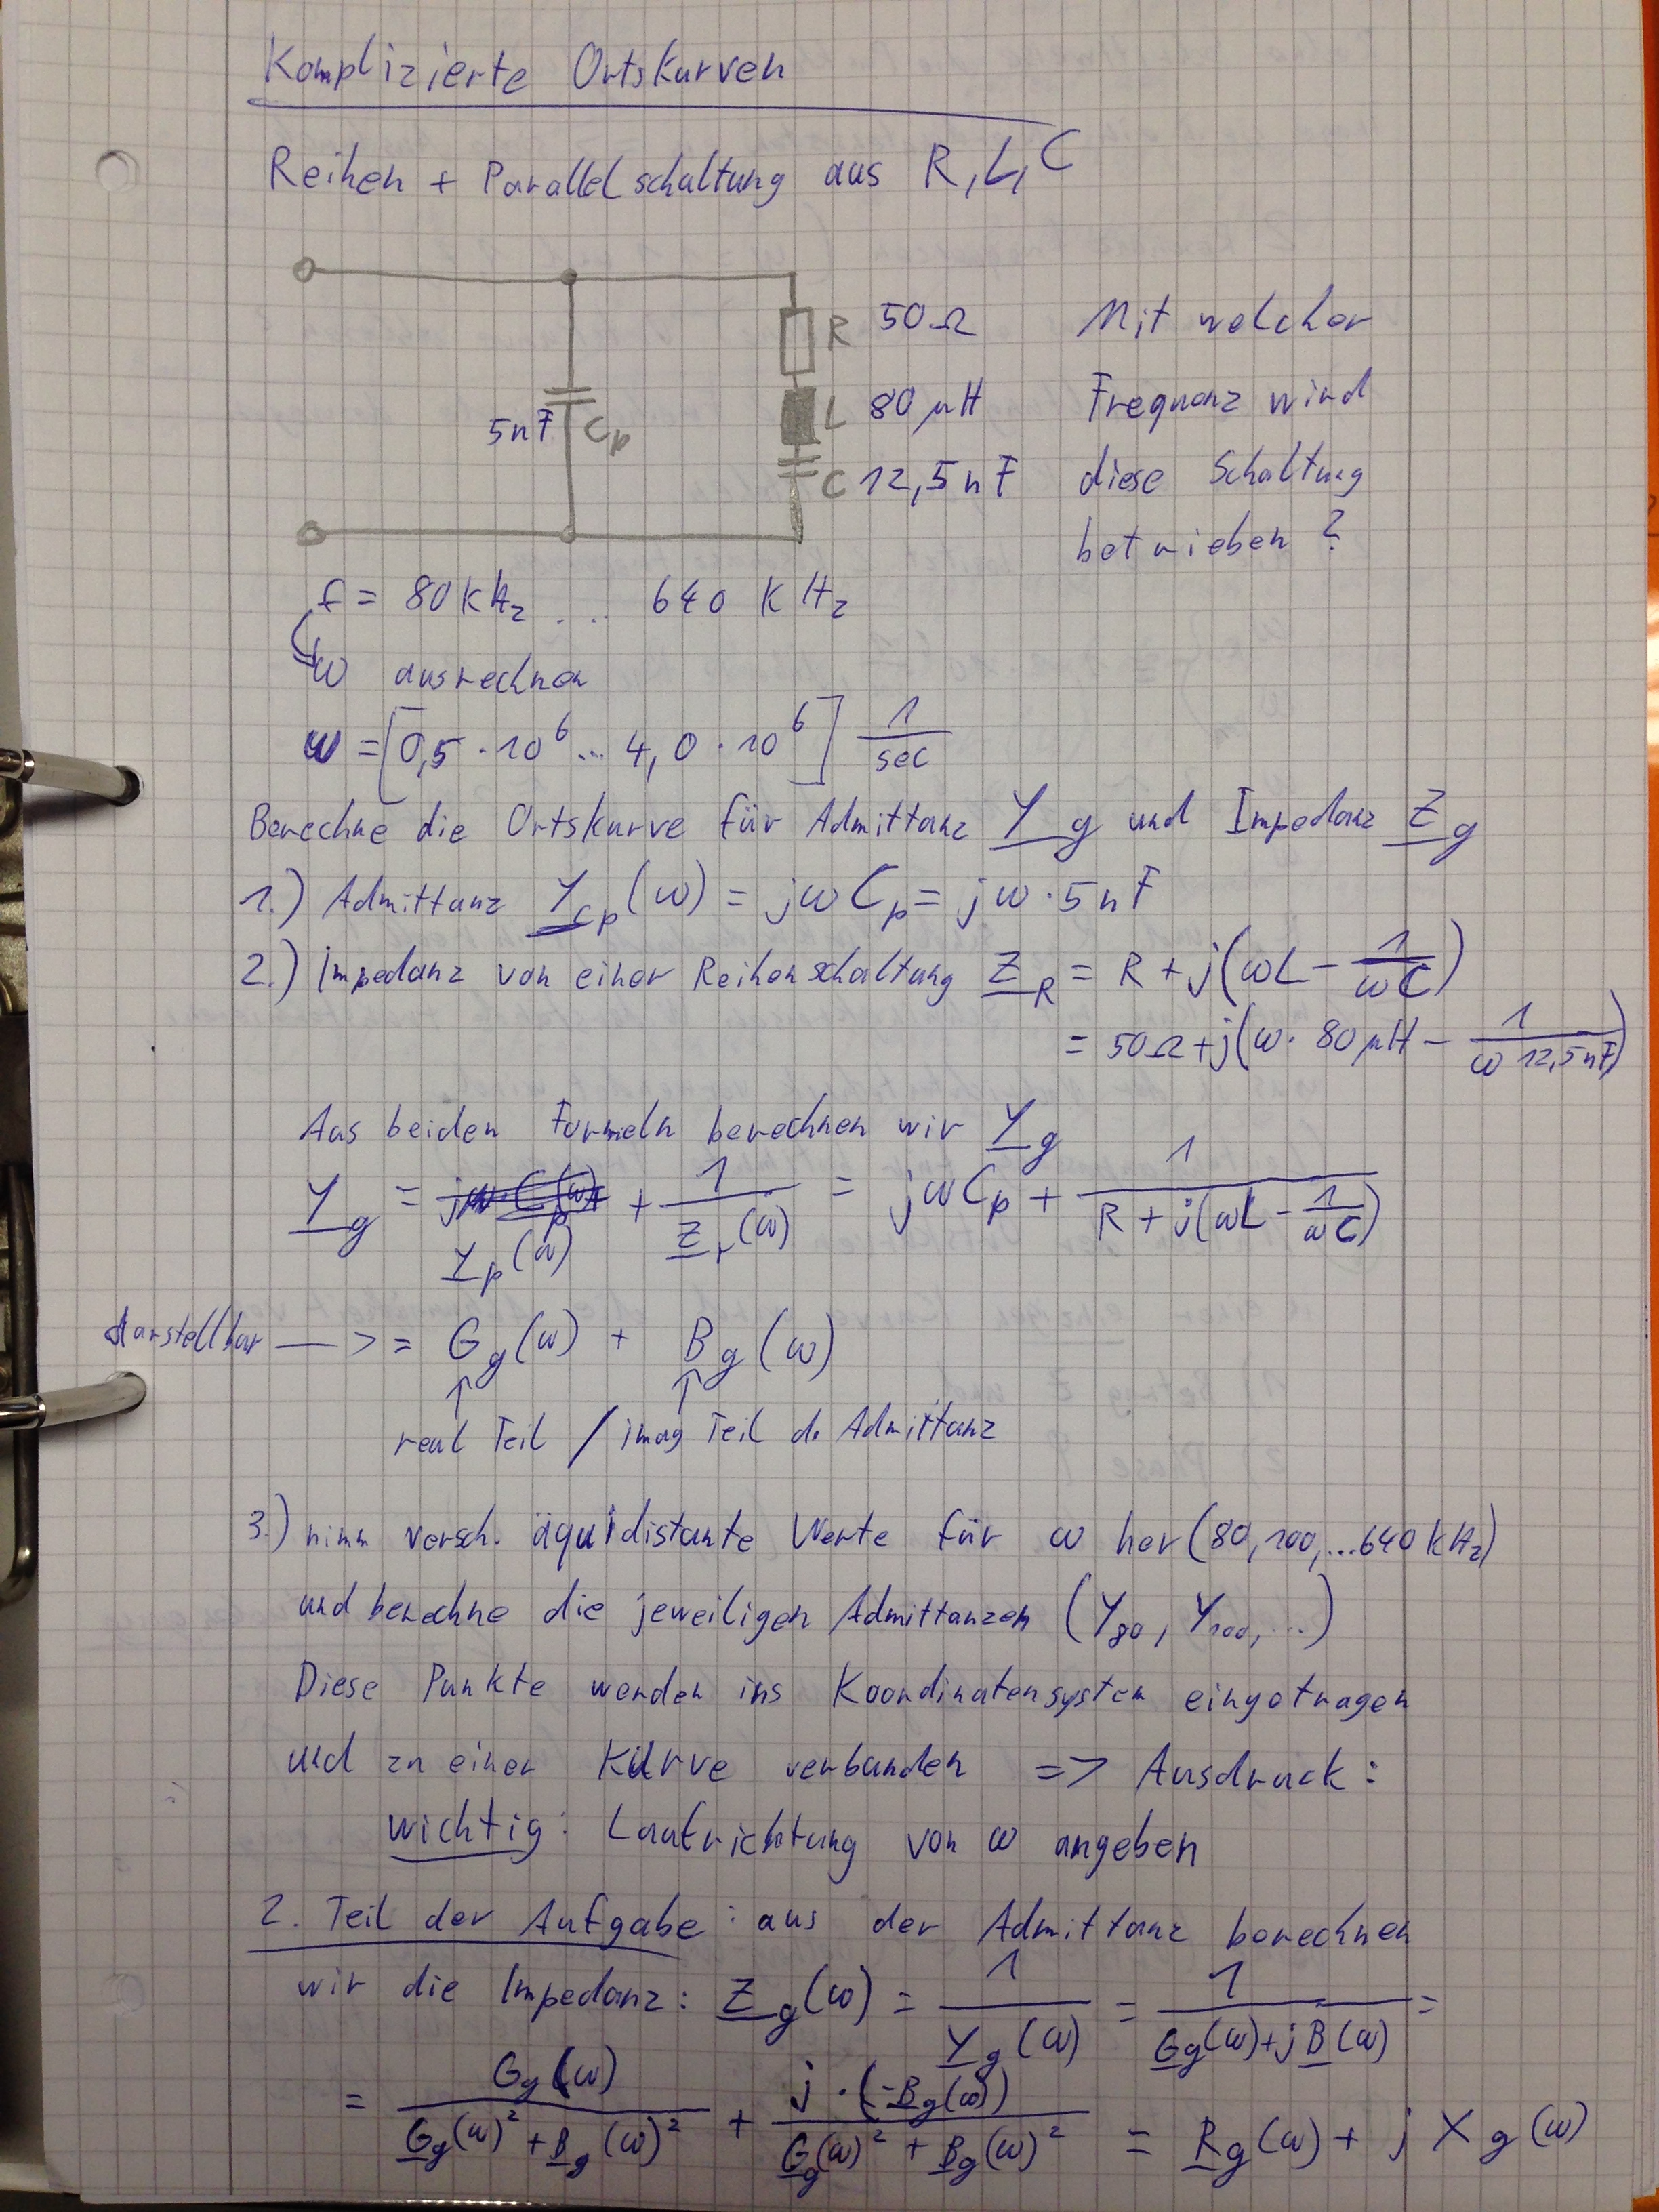 Komplizierte Ortskurven
Reihen + Parallelschaltung aus R, L, C
R 50Ω Mit welcher
L 80 µH Frequenz wird
5nF Cp C 12,5 nF diese Schaltung
betrieben ?
f = 80 kHz ... 640 kHz
ω ausrechnen
ω = [0,5 · 10^6 ... 4,0 · 10^6] 1/sec
Berechne die Ortskurve für Admittanz Y_g und Impedanz Z_g
1.) Admittanz Y_Cp (ω) = jωC_p = jω · 5nF
2.) Impedanz von einer Reihenschaltung Z_R = R + j(ωL - 1/ωC)
= 50Ω + j(ω · 80 µH - 1/(ω 12,5nF))
Aus beiden Formeln berechnen wir Y_g
Y_g = Y_p(ω) + 1/Z_r(ω) = jωC_p + 1/(R + j(ωL - 1/ωC))
darstellbar —> = G_g(ω) + B_g(ω)
↑ ↑
real Teil / imag Teil d. Admittanz
3.) nimm versch. äquidistante Werte für ω her (80, 100, ... 640 kHz)
und berechne die jeweiligen Admittanzen (Y_80, Y_100, ...)
Diese Punkte werden ins Koordinatensystem eingetragen
und zu einer Kurve verbunden => Ausdruck:
wichtig: Laufrichtung von ω angeben
2. Teil der Aufgabe: aus der Admittanz berechnen
wir die Impedanz: Z_g(ω) = 1/Y_g(ω) = 1/(G_g(ω)+jB(ω)) =
= G_g(ω)/(G_g(ω)² + B_g(ω)²) + j · (-B_g(ω))/(G_g(ω)² + B_g(ω)²) = R_g(ω) + j X_g(ω)